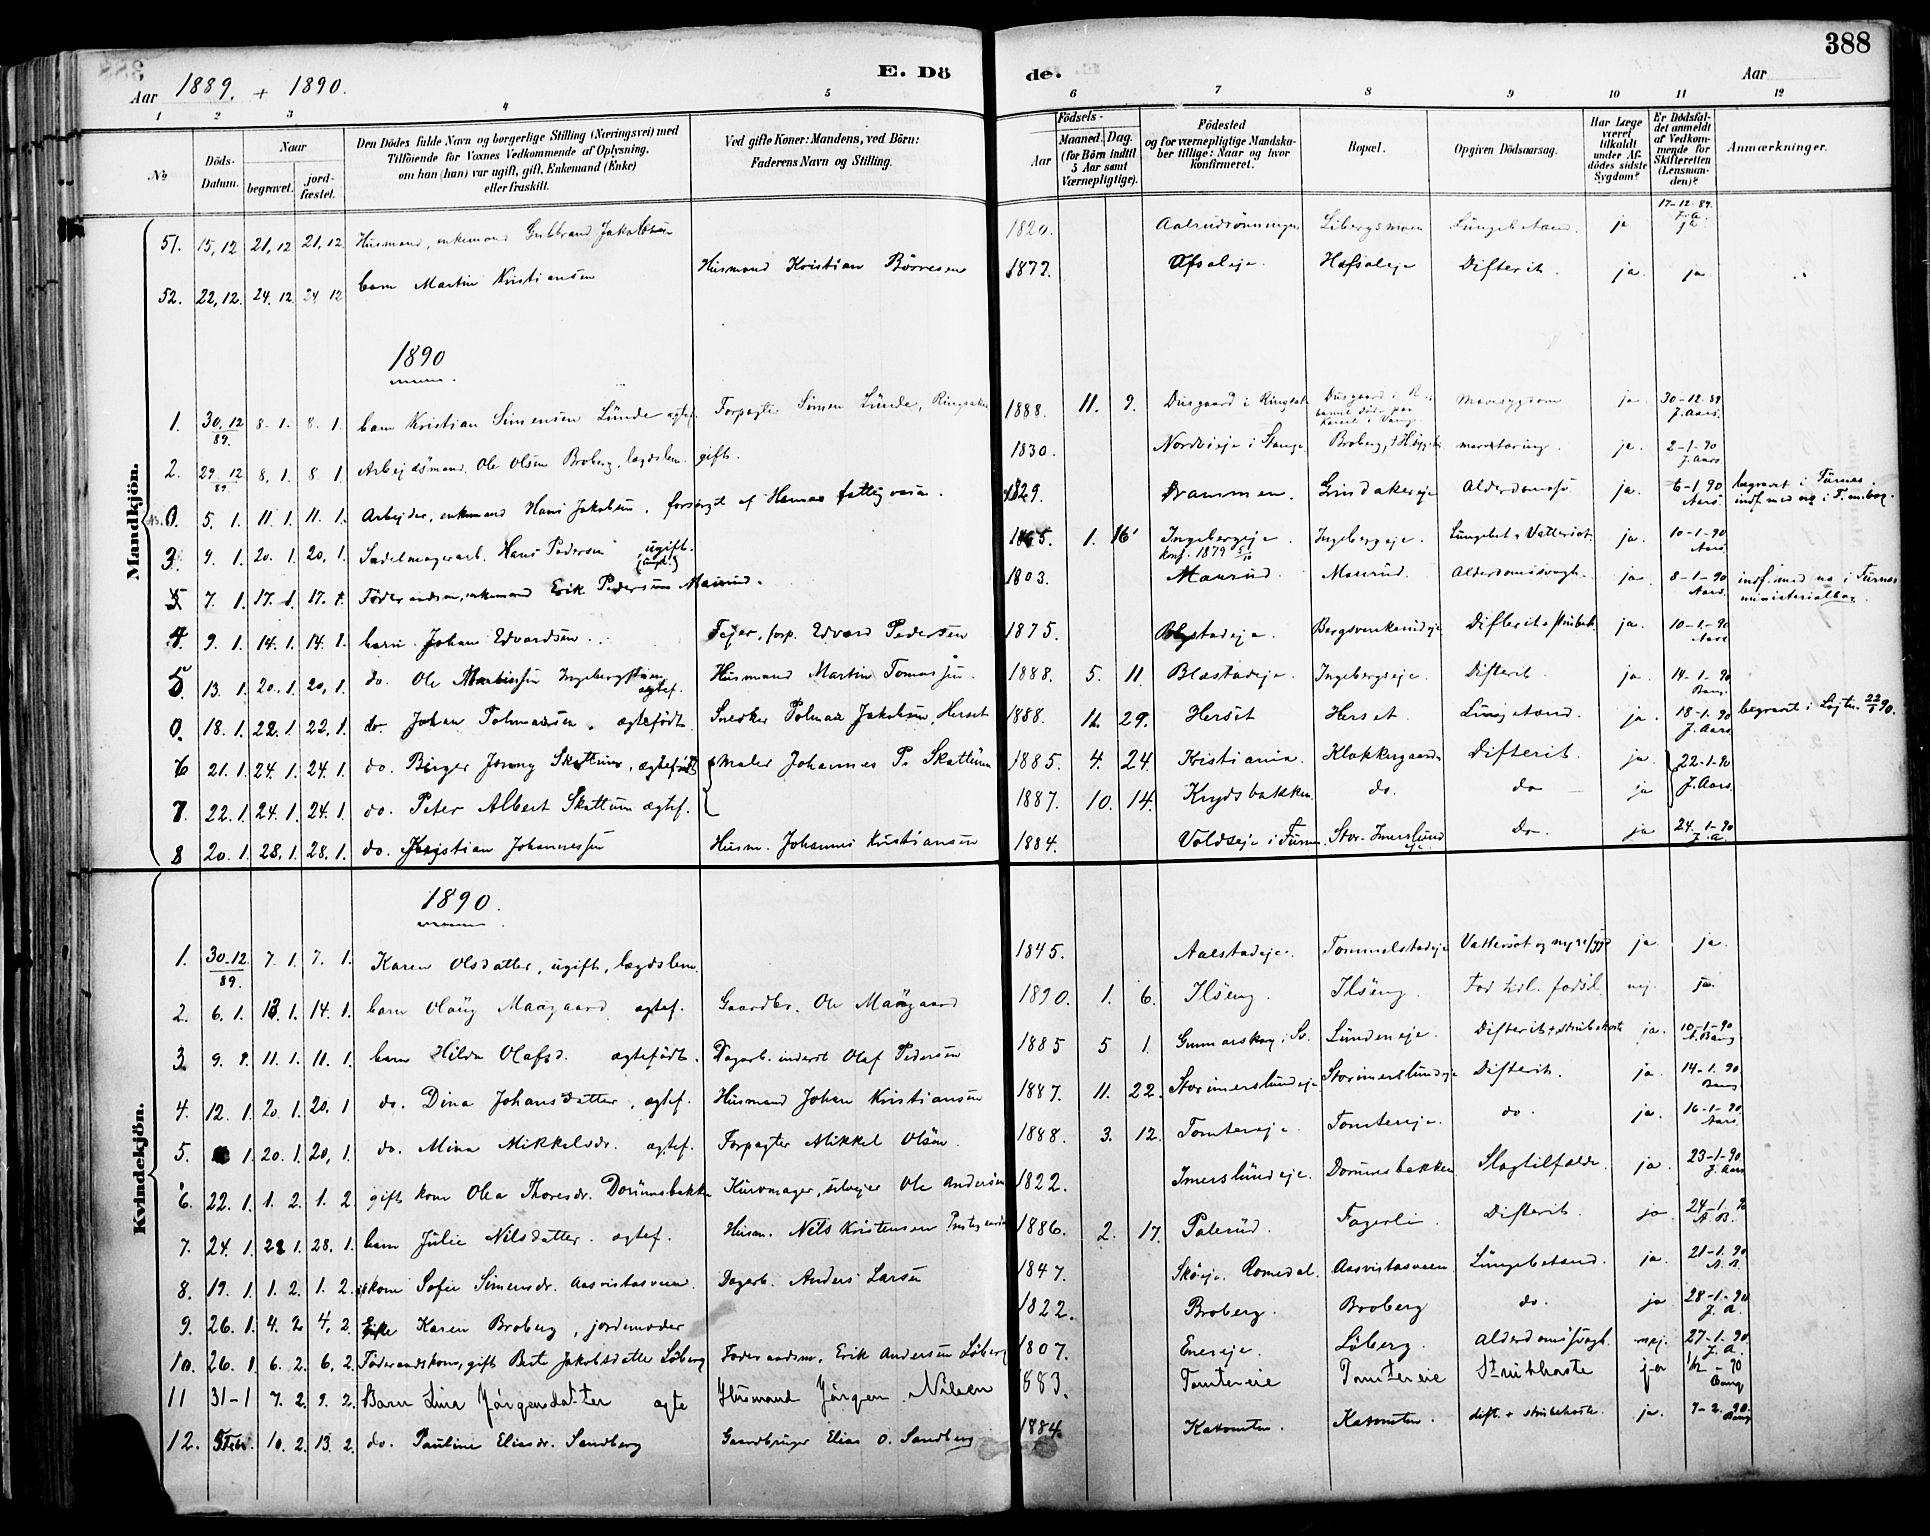 388
Aar 1889. + 1890. E. Dö de. Aar
1 2 3 4 5 6 7 8 9 10 11 12
No Döds-Datum. Naar begravet. jordfæstet. Den Dödes fulde Navn og borgerlige Stilling (Næringsvei) med Tilföiende for Voxnes Vedkommende af Oplysning, om han (hun) var ugift, gift, Enkemand (Enke) eller fraskilt. Ved gifte Koner: Mandens, ved Börn: Faderens Navn og Stilling. Födsels- Aar Maaned. Dag. (for Börn indtil 5 Aar samt Værnepligtige). Födested og for værnepligtige Mandskaber tillige: Naar og hvor konfirmeret. Bopæl. Opgiven Dödsaarsag. Har Læge været tilkaldt under Afdödes sidste Sygdom? Er Dödsfaldet anmeldt af Vedkommende for Skifteretten (Lensmanden)? Anmærkninger.
Mandkjön.
51. 15, 12 21, 12 21, 12 Husmand, enkemand Gulbrand Jakobsen 1820. Libergsmoen Lungebetænd. ja 17-12-89. J.A. ja
52. 22, 12. 24. 12 24 12 barn Martin Kristiansen Husmand Kristian Börresen 1877. Hafsaleje Difterit. ja. ja
1890
1. 30. 12 89. 8. 1. 8. 1. barn Kristian Simensen Lünde ægtef. Forpagter Simen Lünde, Ringsaker 1888. 11. 9. Dusgaard i Ringsak. mavesygdom ja. 30-12-89 J. Aars.
2. 29. 12 89 8, 1. 8 1. Arbejdsmand Ole Olsen Broberg, lægdslem. gift. 1830. Nordvieje i Stange Broberg, ja. 2-1-90 J. Aars
0. 5. 1. 11. 1. 11. 1. Arbejder, enkemand Hans Jakobsen, forsörget af Hamar fattigvæsen. 1829. Drammen. Grindakereje Alderdomssv. ja. 6-1-90 Aars. begravet i Fürnes. indf. med no i F.
3. 9. 1. 20. 1. 20, 1. Sadelmagerarb. Hans Pedersen ugift. 1865. 1. 16 Ingebergeje. konf. 1879 Ingebergeje. Lungebet + Vattersot. ja. 10-1-90 Aars.
7. 1. 17. 1. 17. 1. Föderaadsm, enkemand Erik Pedersen Maurud. 1803. Maurud. Maurud. Alderdomssvagh. ja 8-1-90 Aars. indf. med no i Fürnes ministerialbog
4. 9. 1. 14. 1. 14. 1. barn Johan Edvardsen. Fejer, forp. Edvard Pedersen 1875. Difterit + strubeh. ja. 10-1-90 Aars
5. 13. 1. 20. 1. 20, 1. do. Ole Martinsen ægtef. Husmand Martin Tomassen. 1888. 5. 11. Blæstadeje. Ingebergseje. Difterit. ja. 14-1-90 Bang.
0. 18. 1. 22. 1. 22. 1. do. Johan Palmarsen. ægtefödt Snedker Palmar Jakobsen, Herset 1888. 11. 29. Herset Herset. Lungbetænd. ja. 18-1-90 J. Aars begravet i Löjten 22/1 90.
6 21. 1. 24. 1. 24. 1. do. Birger Jonny Skattum, ægtefödt Maler Johannes P. Skattüm 1885. 4. 24. Kristiania. Klokkergaarden Difterit. ja. 22-1-90 J. Aars.
7. 22. 1. 24. 1. 24. 1. do. Peter Albert Skattum ægtef. 1887. 10. 14. Krydsbakken do. do ja
8 20. 1. 28. 1. 28. 1. do. Kristian Johannessen Husm. Johannes Kristiansen 1884. Voldseje i Fürnes. Stor-Imerslund eje do. ja 24-1-90 J. A.
Kvindekjön.
1890.
1. 30-12 89. 7. 1. 7. 1. Karen Olsdatter, ugift, lægdslem. 1845. Aalstadeje. Tommelstadeje Vattersot og nyresyge ja ja.
2. 6. 1. 13. 1. 14. 1. barn Olaüg Maagaard ægtef. Gaardbr. Ole Maagaard 1890. 1. 6. Ilseng. Ilseng. For tidl. födsel. nej. ja.
3. 9. 1. 11. 1. 11. 1. barn Hilda Olafsd. ægtefödt. Dagarb. inderst Olaf Pedersen 1885 5 1. Gunnarskog i Sv. Lündeneje. Difterit + strubehoste ja. 10-1-90 A. Bang
4. 12. 1. 20. 1. 20, 1 do. Dina Johansdatter, ægtef. Husmand Johan Kristiansen 1887. 11. 22. Storimerslundeje Storimerslundeje Difterit. ja. 14-1-90 Bang
5. 1. 20. 1. 20, 1. do. Mina Mikkelsdr. ægtef. Forpagter Mikkel Olsen. 1888. 3. 12. Tomtereje. Tomtereje. do. ja. 16-1-90 Aars.
6. 22. 1. 1. 2. 1. 2. gift kone Olea Thoresdr. Dorümsbakken Kurvmager, selvejer Ole Andersen 1822. Imerslündeje. Dorumsbakken Slagtilfælde. ja. 23-1-90 J. Aars
7. 24. 1. 28 1. 28. 1. barn Jülie Nilsdatter. ægtef. Husm. Nils Kristensen 1886. 2. 17. Palerüd. Fagerli Difterit. ja 24-1-90 A. B.
8. 19. 1. 1. 2. 1. 2. kone Sofie Simensdr. Aasvistasveen. Dagarb. Anders Larsen 1847. Sköeje. Romedal. Aasvistasveen Lüngebetænd. ja. 21-1-90
9. 26. 1. 4. 2 4, 2. Enke Karen Broberg, jordemoder 1822. Broberg. Broberg do. ja 28-1-90 J. A.
10. 26. 1. 6. 2. 6, 2. Föderaadskone, gift Berte Jakobsdatter Löberg Föderaadsm. Erik Andersen Löberg 1807. Enereje. Löberg. Alderdomssvagh. nej. 27-1-90 J. A.
11 31-1 7. 2. 9. 2. Barn Lina Jörgensdatter ægte Husmand Jörgen Nilsen 1883. Tomtereie Tomtereie Strubehoste ja 1/2-90 Bang
12. 5 Febr. 10. 2. 13. 2. do. Pauline Eliasdr. Sandberg Gaardbruger Elias O. Sandberg 1884. Katomten. Katomten. dift. + strubehoste. ja. 7-2-90. Bang